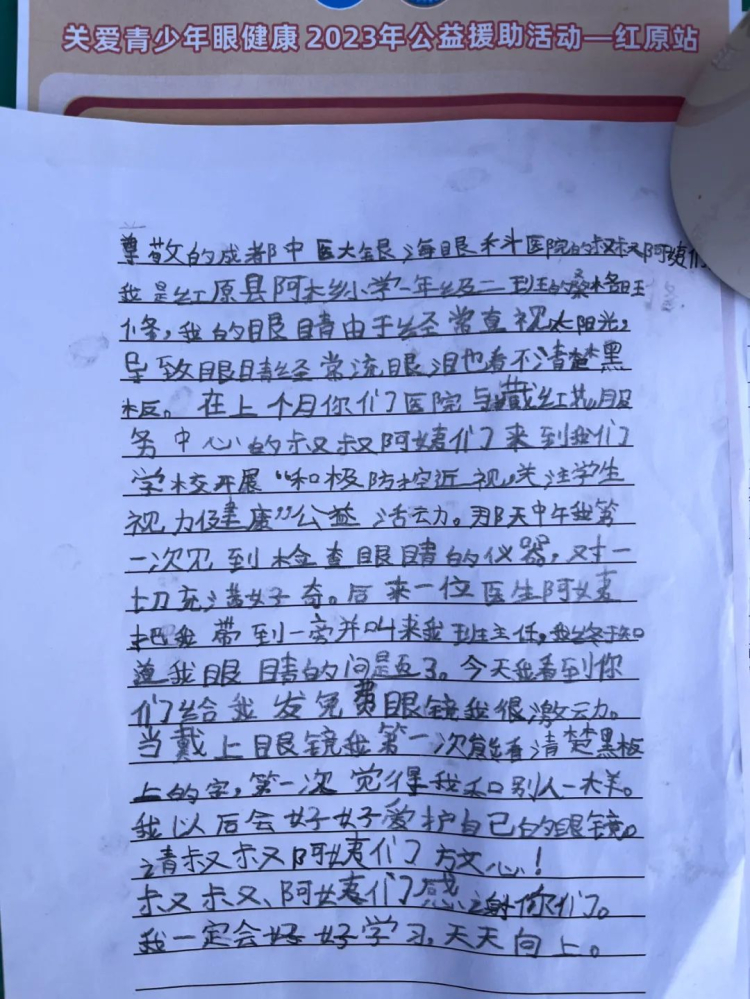 关爱青少年眼健康 2023年公益援助活动—红原站
尊敬的成都中医大银海眼科医院的叔叔阿姨们
我是红原县阿木乡小学一年级二班的桑格旺
修,我的眼睛由于经常直视太阳光,
导致眼睛经常流眼泪也看不清楚黑
板。在上个月你们医院与藏红花服
务中心的叔叔阿姨们来到我们
学校开展“积极防控近视,关注学生
视力健康”公益活动。那天中午我第
一次见到检查眼睛的仪器,对一
切充满好奇。后来一位医生阿姨
把我带到一旁并叫来我班主任,我终于知
道我眼睛的问题了。今天我看到你
们给我发免费眼镜我很激动。
当戴上眼镜我第一次能看清楚黑板
上的字,第一次觉得我和别人一样。
我以后会好好爱护自己的眼镜。
请叔叔阿姨们放心!
叔叔、阿姨们感谢你们。
我一定会好好学习,天天向上。